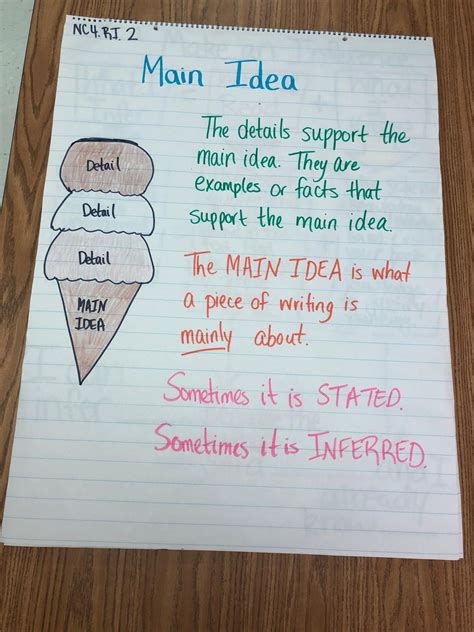 NC4.RI.2
Main Idea
Detail
Detail
Detail
MAIN
IDEA
The details support the
main idea. They are
examples or facts that
support the main idea.
The MAIN IDEA is what
a piece of writing is
mainly about.
Sometimes it is STATED.
Sometimes it is INFERRED.